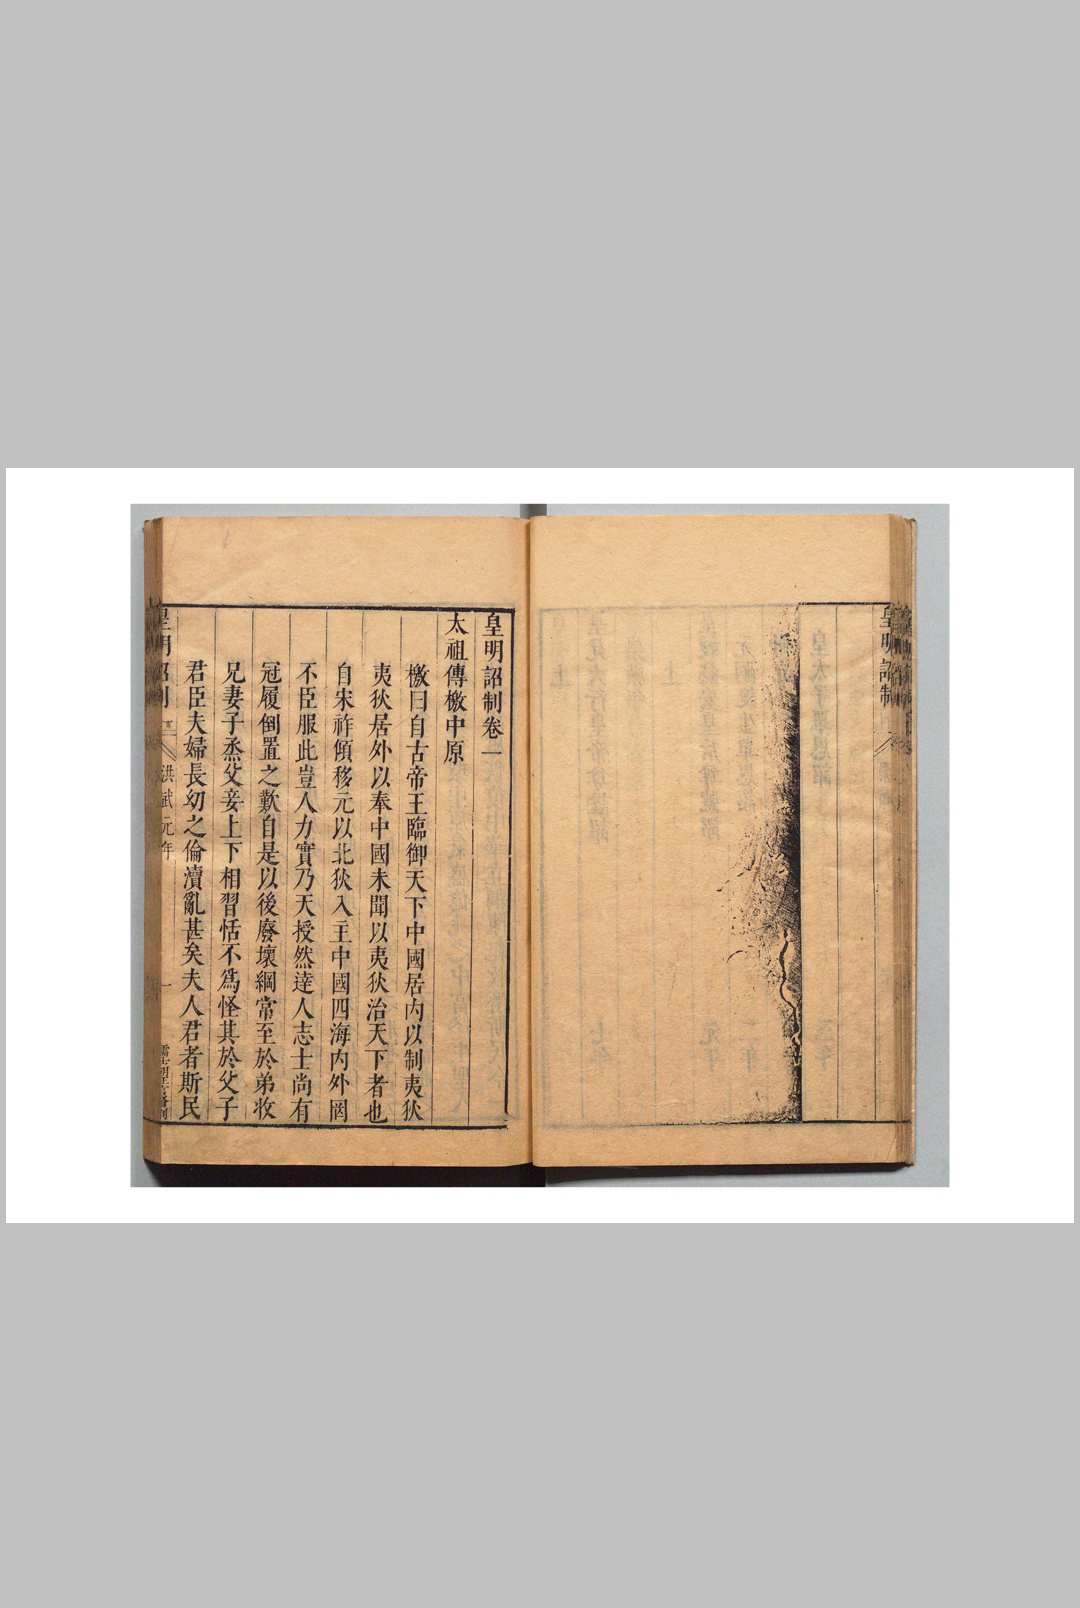 皇明詔制
皇明詔制卷一
太祖傳檄中原
檄曰自古帝王臨御天下中國居內以制夷狄
夷狄居外以奉中國未聞以夷狄治天下者也
自宋祚傾移元以北狄入主中國四海內外罔
不臣服此豈人力實乃天授然達人志士尚有
冠履倒置之歎自是以後廢壞綱常至於弟收
兄妻子烝父妾上下相習恬不爲怪其於父子
君臣夫婦長幼之倫瀆亂甚矣夫人君者斯民
皇明詔制
洪武元年
一